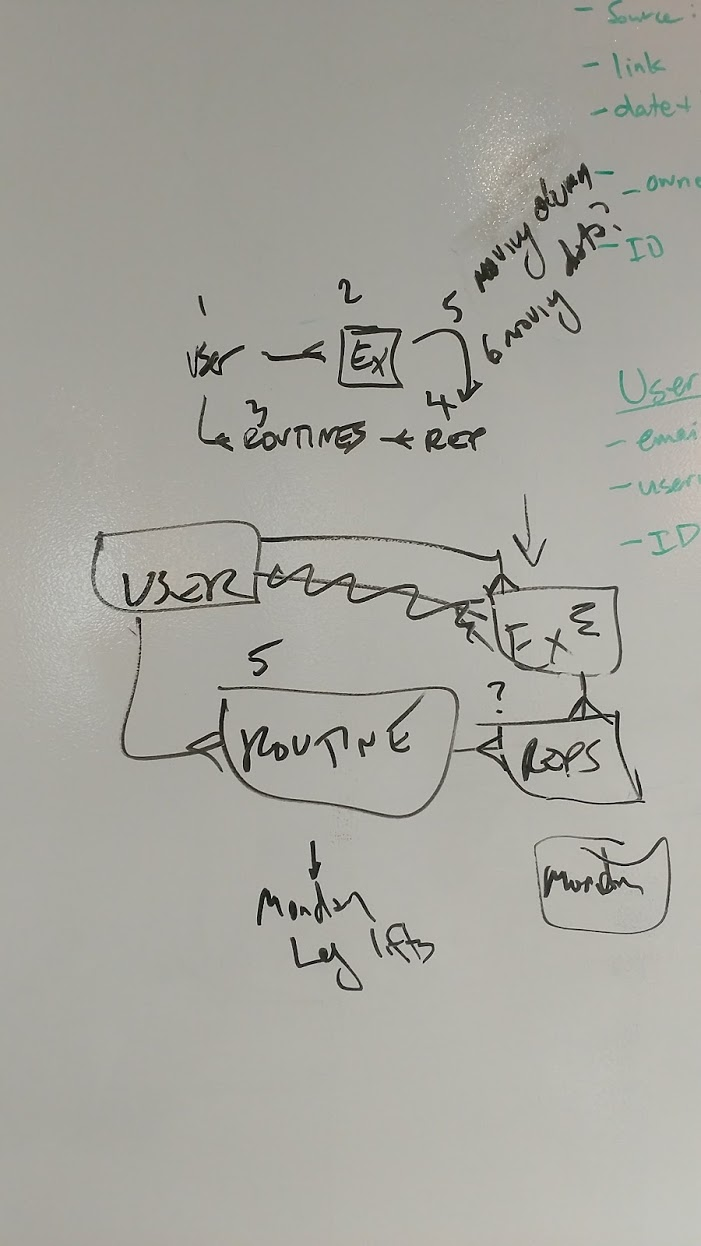 - Source:
- link
- date+
- owne
- ID
5 moving column
6 moving data?
1
2
User
Ex
3
4
ROUTINES
REP
User
- emai
- usern
- ID
USER
Ex
5
ROUTINE
?
REPS
Monday
Leg lifts
Monday